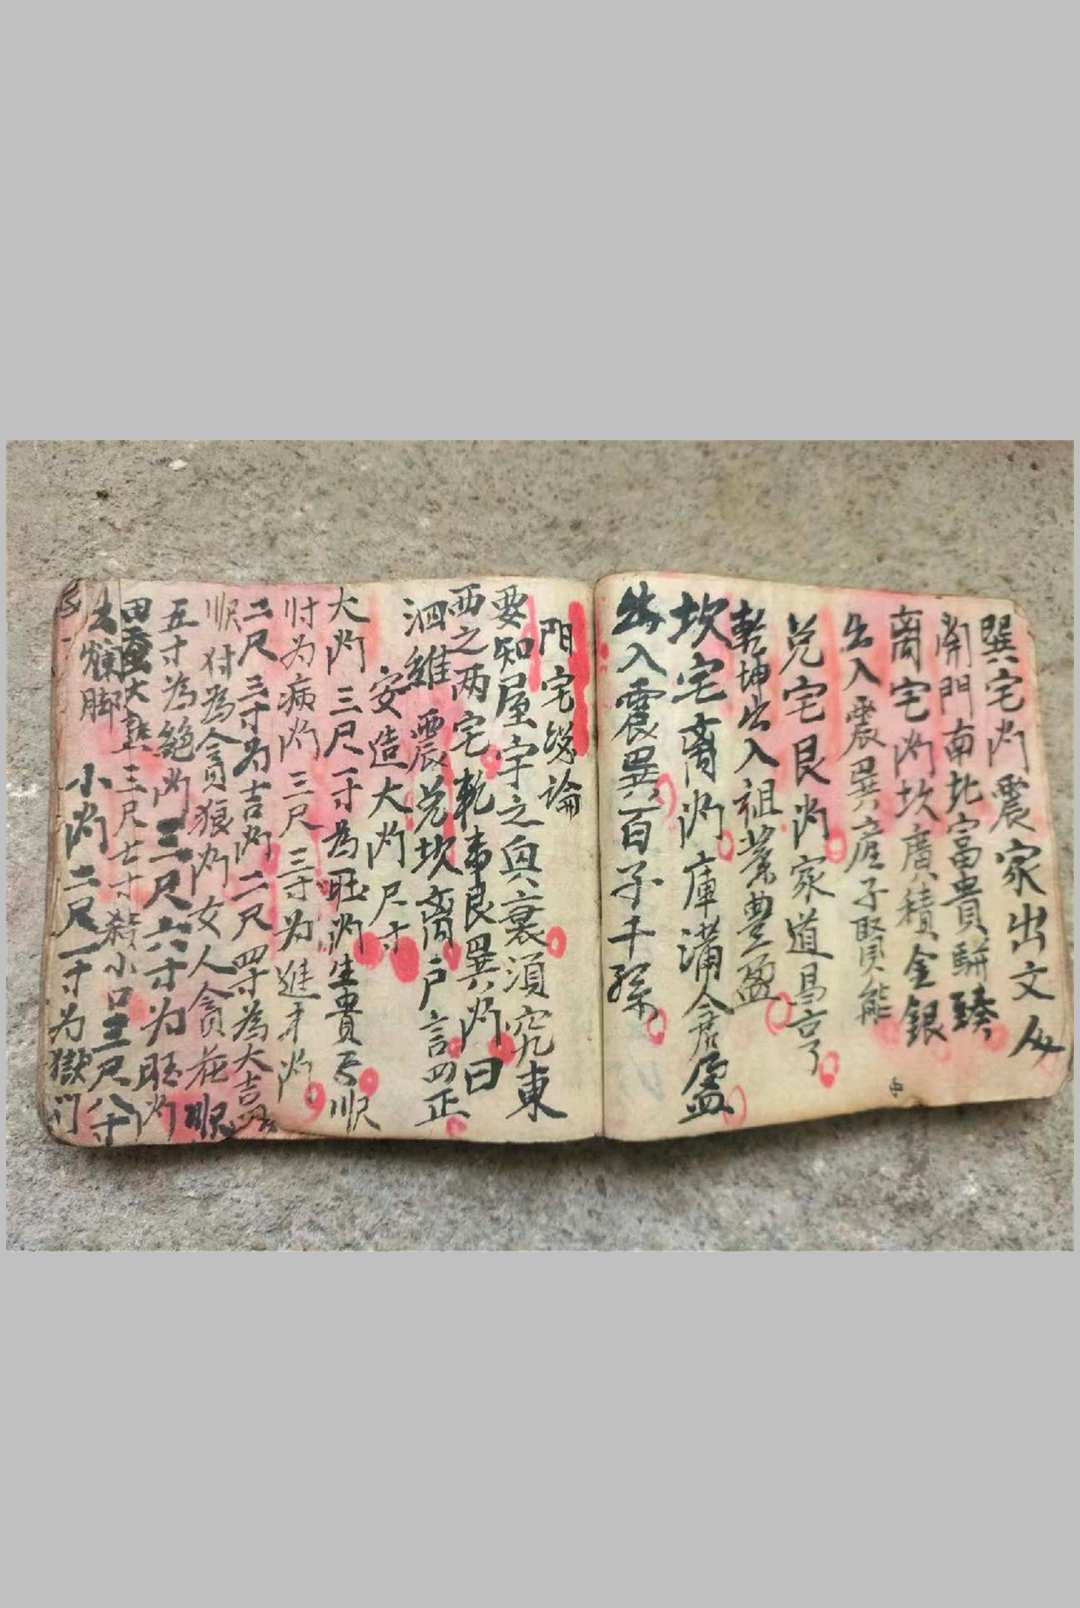 巽宅门震家出文人
開門南北富貴駢臻
离宅门坎廣積金銀
出入震巽产子賢能
兑宅艮门家道昌亨
乾坤出入祖業豊盈
坎宅离门庫满倉盈
出入震巽百子千孫
阳宅総論
要知屋宇之興衰須究東
西之两宅乾奉艮巽门曰
泗維震兑坎离户言四正
安造大门尺寸
大门三尺一寸為旺门生貴子順
时为病门三尺三寸为進才门
二尺三寸为吉门二尺四寸為大吉
順付為貪狼门女人貪花順
五寸為絶门三尺六寸为旺门
田蚕大熟三尺七寸殺小口三尺八寸
去 脚
小门二尺一寸为獄门